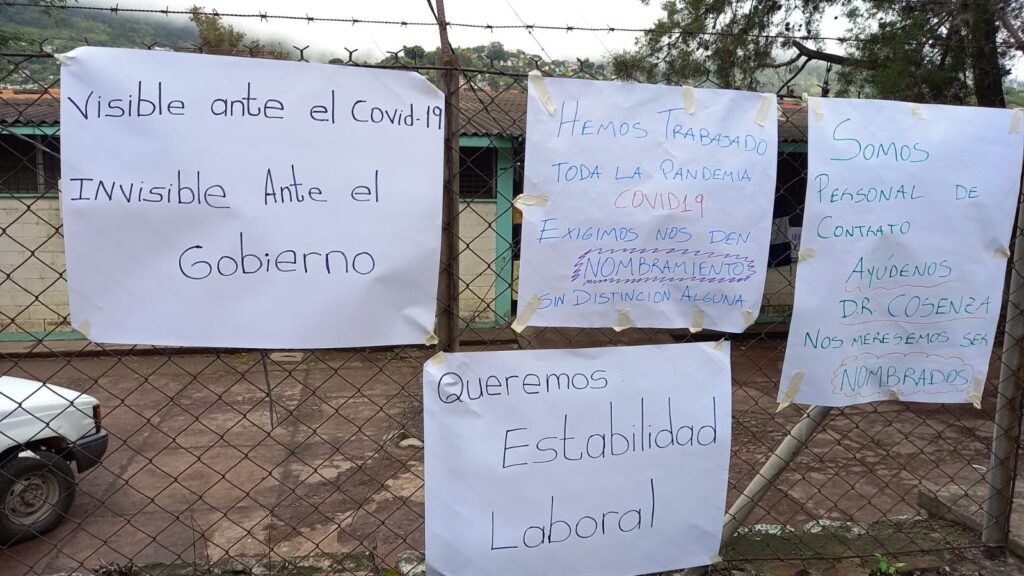 Visible ante el Covid-19
INVisible Ante el
Gobierno
HEMOS TRABAJADO
TODA LA PANDEMIA
COVID19
EXIGIMOS NOS DEN
NOMBRAMIENTO
SIN DISTINCION ALGUNA
SOMOS
PERSONAL DE
CONTRATO
AYÚDENOS
DR. COSENZA
NOS MERESEMOS SER
NOMBRADOS
Queremos:
Estabilidad
Laboral